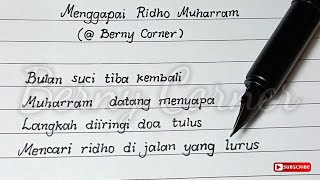 Menggapai Ridho Muharram
(@ Berny Corner)
Bulan suci tiba kembali
Muharram datang menyapa
Langkah diiringi doa tulus
Mencari ridho di jalan yang lurus
Berny Corner
SUBSCRIBE